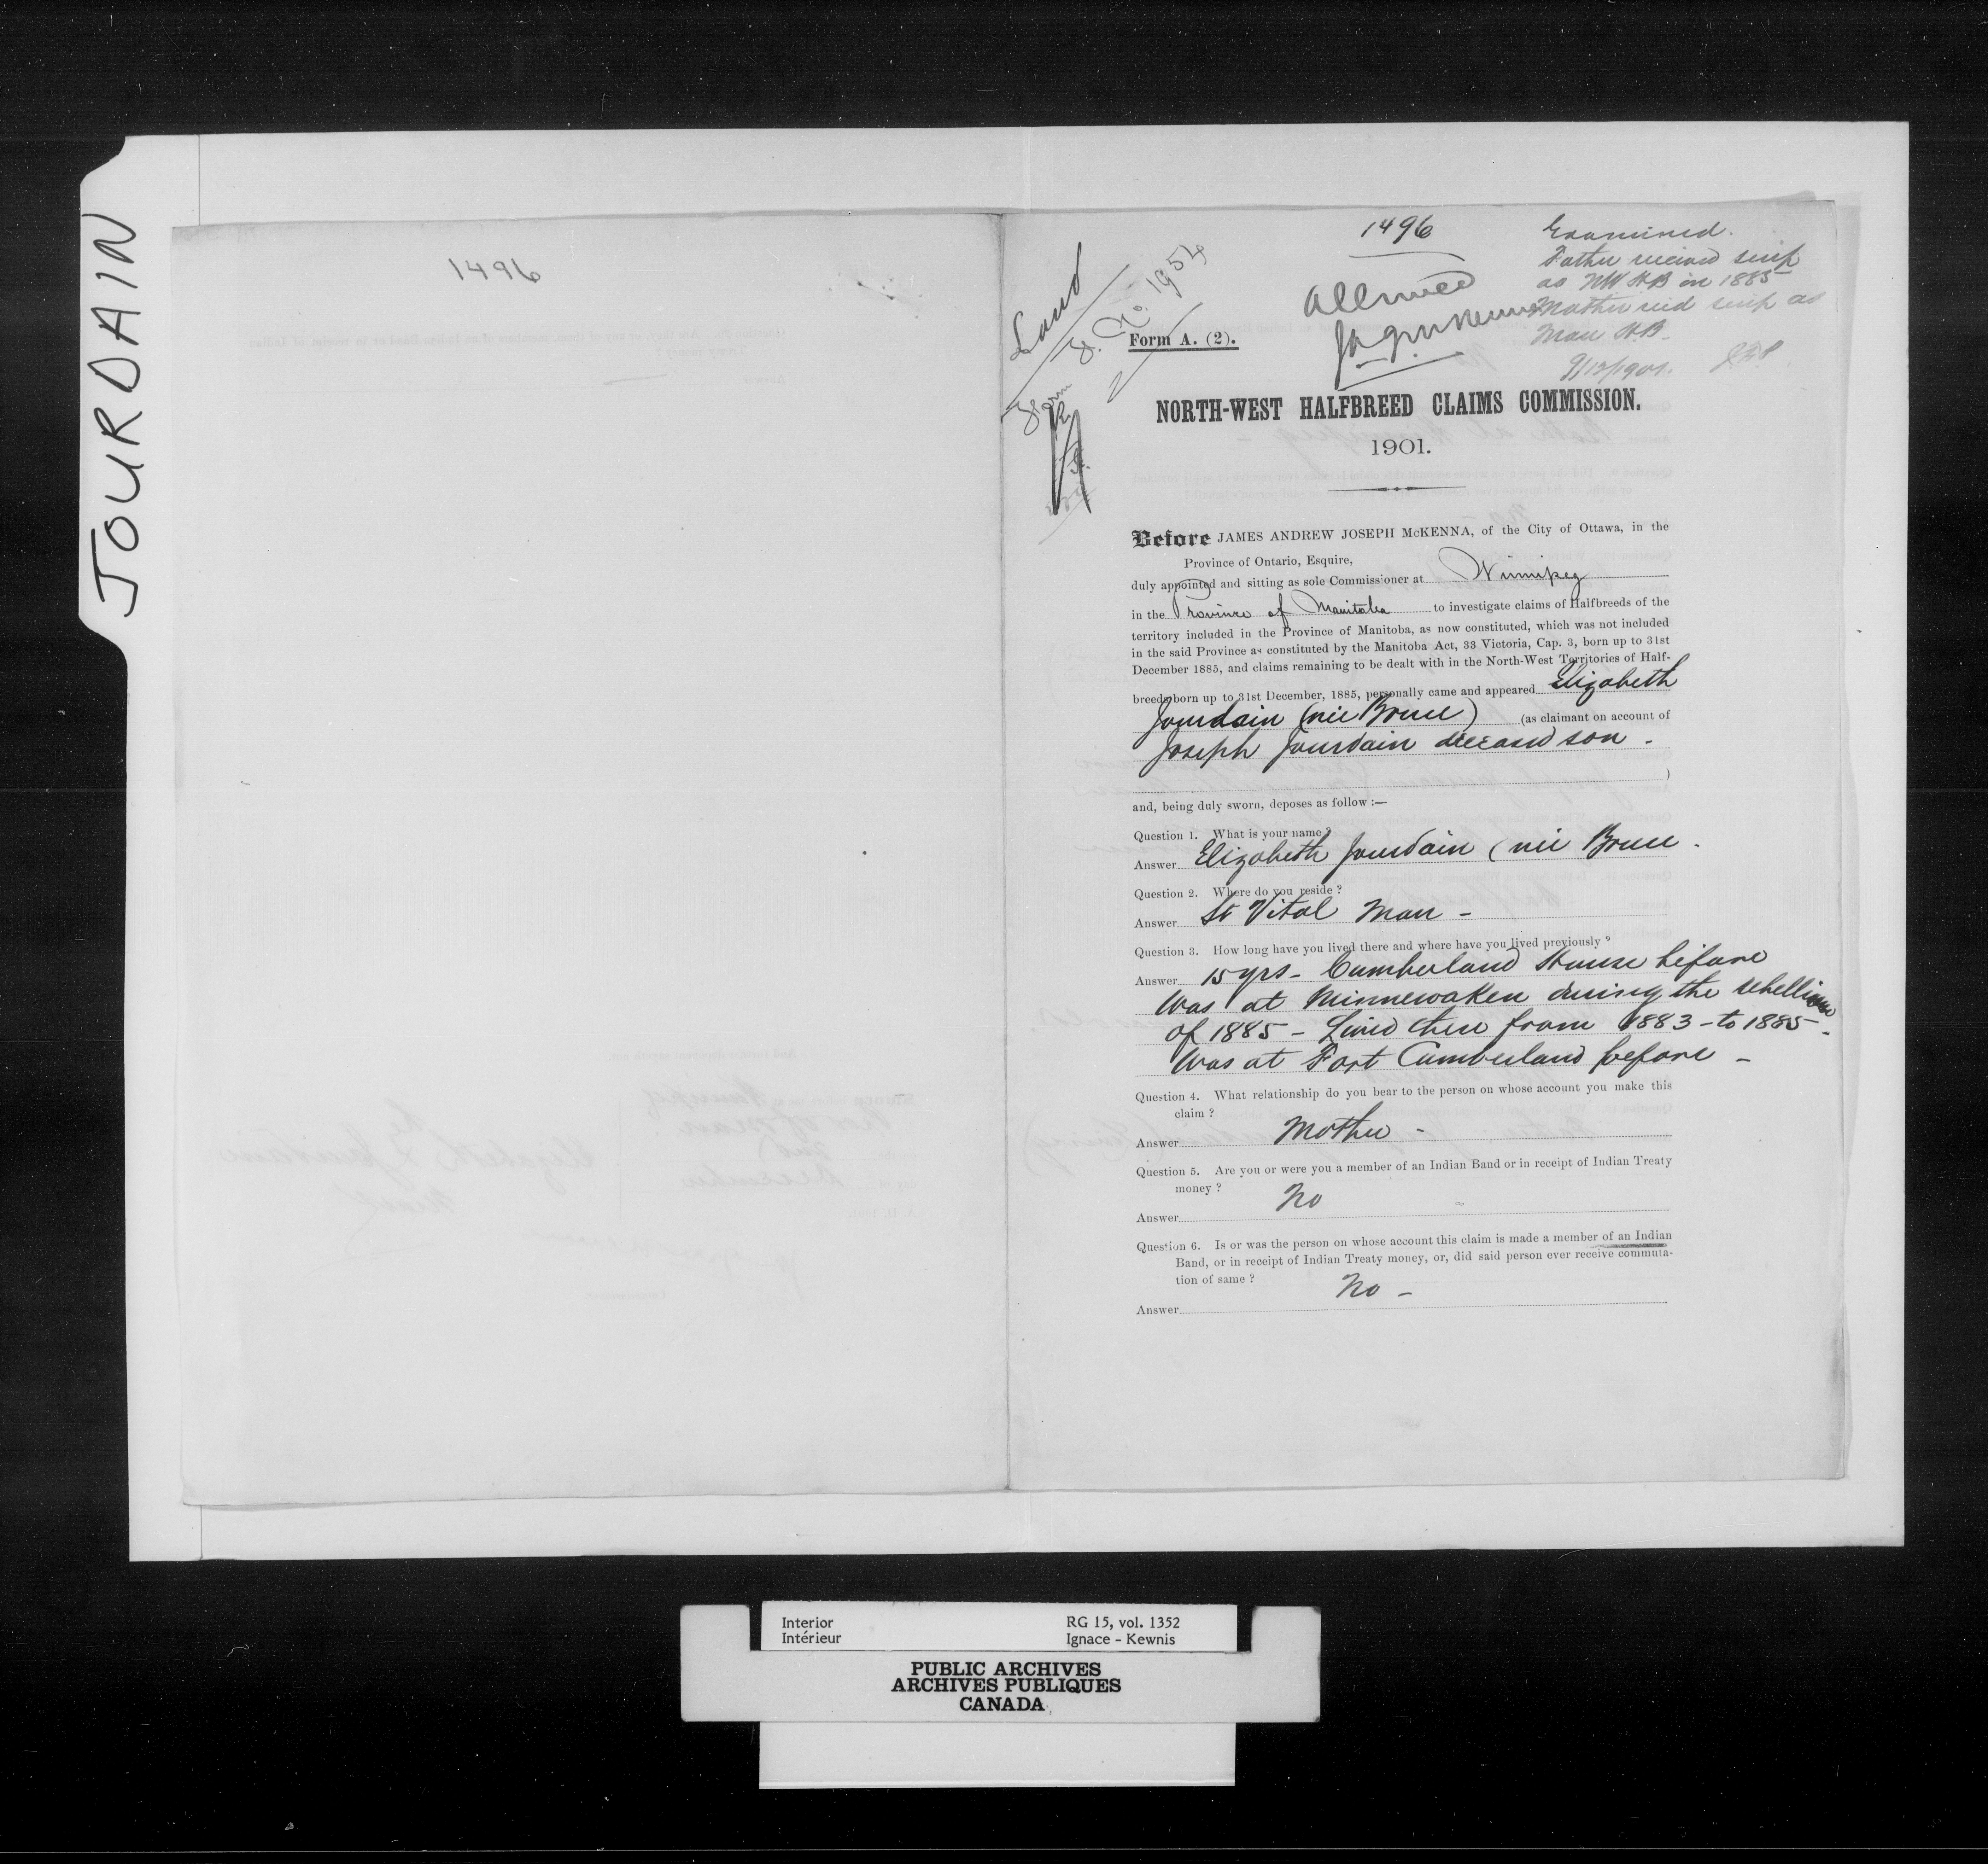 JOURDAIN
1496
1496
Examined.
Father received scrip
as NW HB in 1885
Mother recd scrip as
Man H.B.
9/12/1901.
Allowed
Land
F. No. 1954
Form
Form A. (2).
NORTH-WEST HALFBREED CLAIMS COMMISSION.
1901.
Before JAMES ANDREW JOSEPH McKENNA, of the City of Ottawa, in the
Province of Ontario, Esquire,
duly appointed and sitting as sole Commissioner at Winnipeg
in the Province of Manitoba to investigate claims of Halfbreeds of the
territory included in the Province of Manitoba, as now constituted, which was not included
in the said Province as constituted by the Manitoba Act, 33 Victoria, Cap. 3, born up to 31st
December 1885, and claims remaining to be dealt with in the North-West Territories of Half-
breeds born up to 31st December, 1885, personally came and appeared Elizabeth
Jourdain (nee Bruce) (as claimant on account of
Joseph Jourdain deceased son -
)
and, being duly sworn, deposes as follow :—
Question 1. What is your name ?
Answer Elizabeth Jourdain (nee Bruce -
Question 2. Where do you reside ?
Answer St Vital Man -
Question 3. How long have you lived there and where have you lived previously ?
Answer 15 yrs - Cumberland House before
Was at Minnewaken during the rebellion
of 1885 - Lived there from 1883 - to 1885 -
Was at Fort Cumberland before -
Question 4. What relationship do you bear to the person on whose account you make this
claim ?
Answer Mother -
Question 5. Are you or were you a member of an Indian Band or in receipt of Indian Treaty
money ?
Answer No
Question 6. Is or was the person on whose account this claim is made a member of an Indian
Band, or in receipt of Indian Treaty money, or, did said person ever receive commuta-
tion of same ?
Answer No -
Interior
Intérieur
RG 15, vol. 1352
Ignace - Kewnis
PUBLIC ARCHIVES
ARCHIVES PUBLIQUES
CANADA